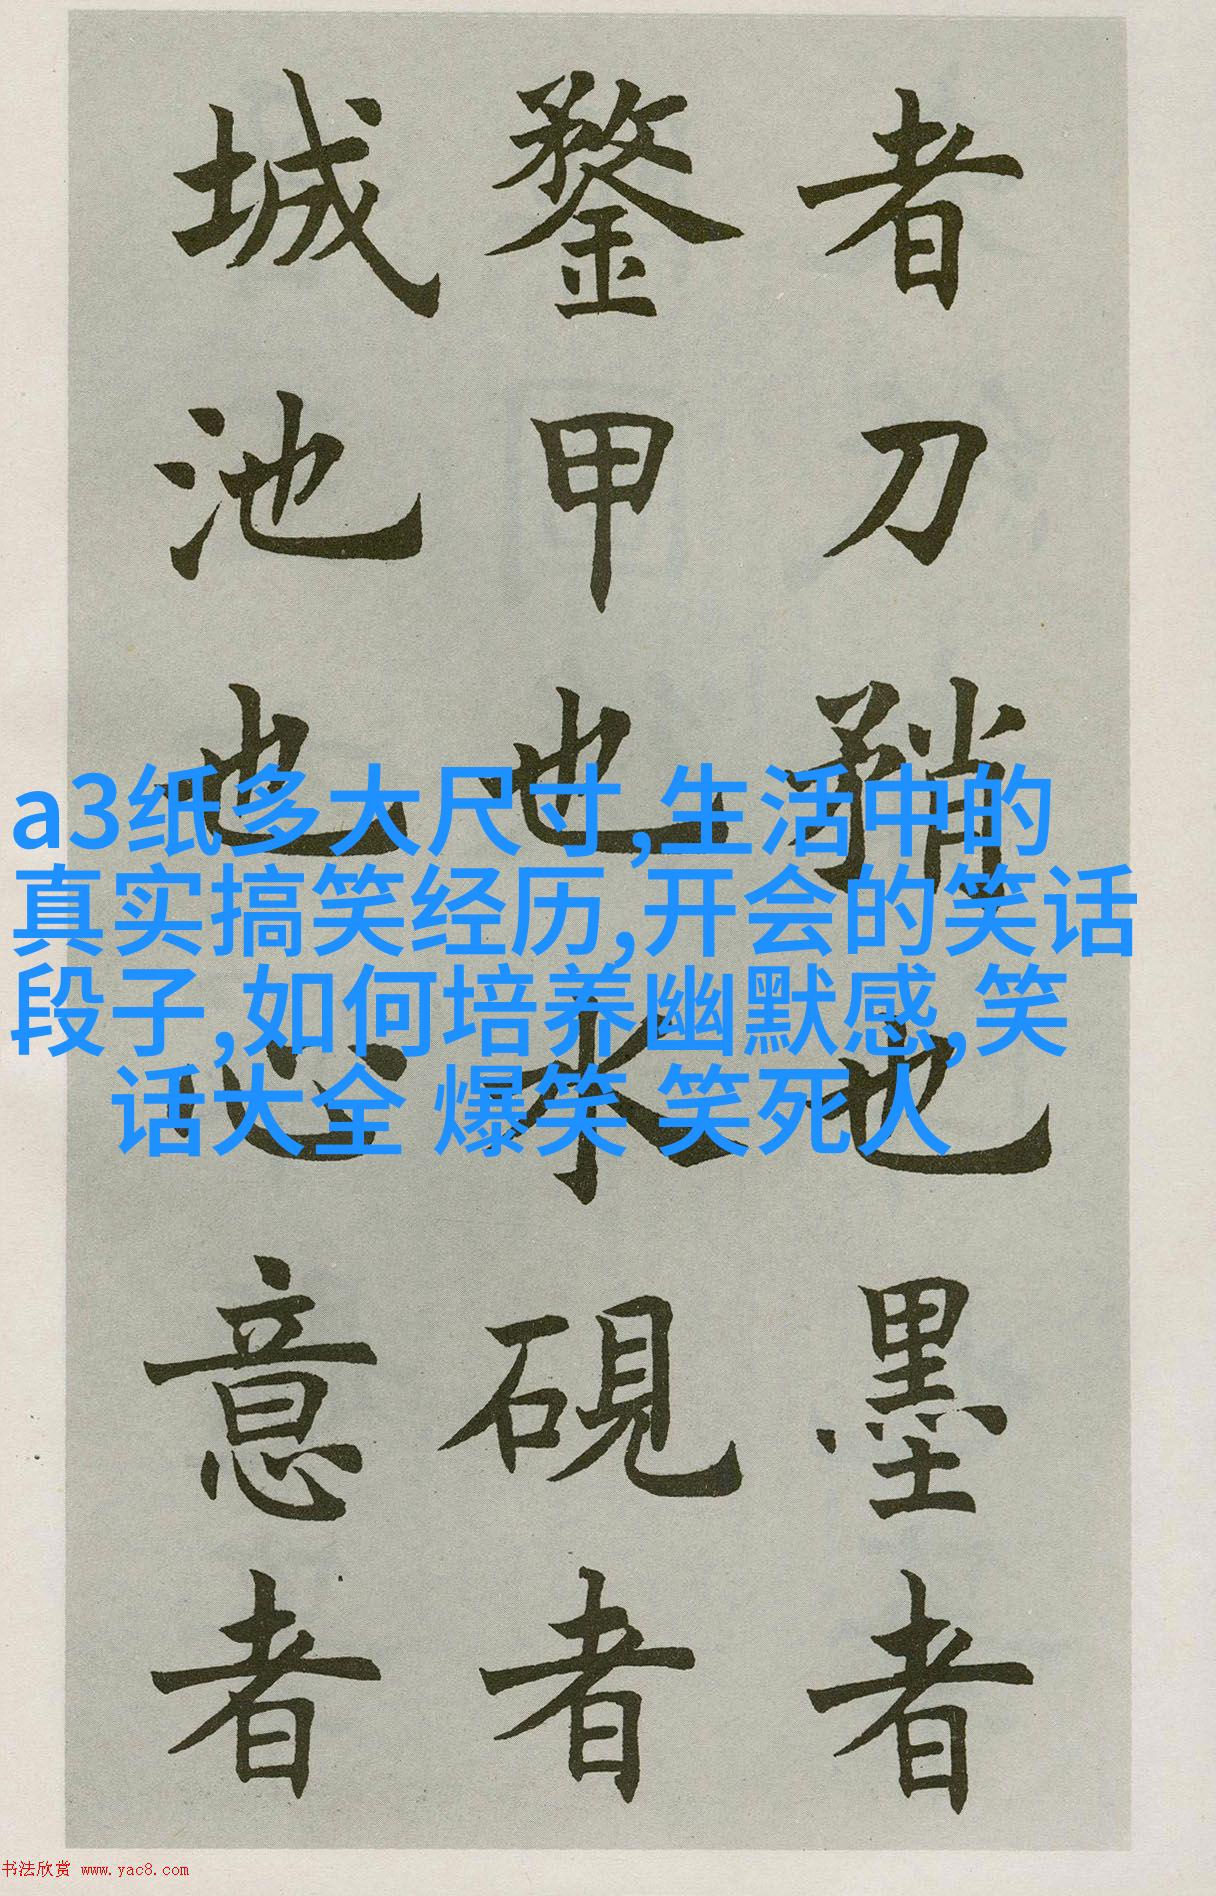 者刀矟也墨者
鍪甲也水硯者
城池也心意者
a3纸多大尺寸,生活中的
真实搞笑经历,开会的笑话
段子,如何培养幽默感,笑
话大全 爆笑 笑死人
书法欣赏 www.yac8.com